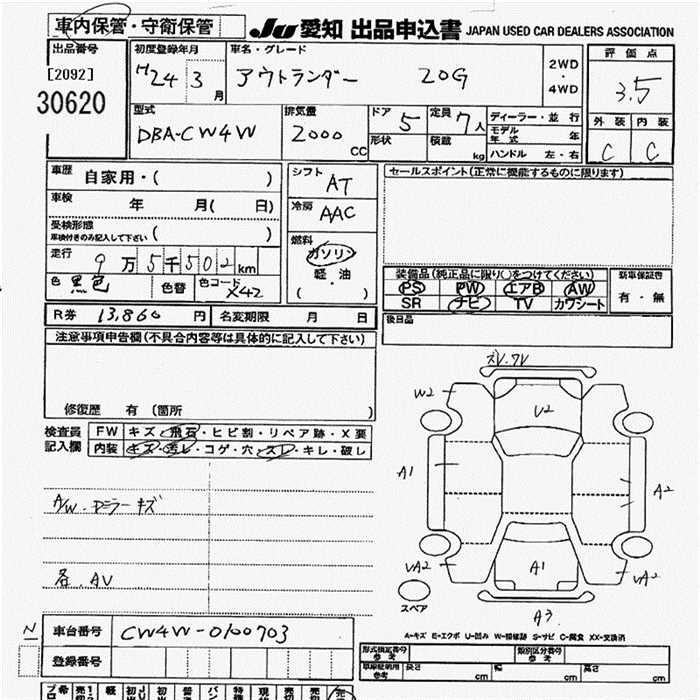 車内保管・守衛保管
JU 愛知 出品申込書 JAPAN USED CAR DEALERS ASSOCIATION
出品番号
[2092]
30620
初度登録年月
H24 3月
車名・グレード
アウトランダー 20G
2WD
・
4WD
評価点
3.5
型式
DBA-CW4W
排気量
2000 CC
ドア 5
定員 7人
形状
積載 kg
ディーラー・並行
モデル年式 年
ハンドル 左・右
外装 内装
C C
車歴 自家用・( )
車検 年 月( 日)
受検形態
車検付きのみ記入して下さい ( )
走行 9万5千502km
色 黒色 色替 色コード X42
シフト AT
冷房 AAC
燃料
ガソリン
・
軽・油
( )
セールスポイント(正常に機能するものに限ります)
装備品(純正品に限り○をつけてください)
PS PW エアB AW
SR ナビ TV カワシート
新車保証書
有・無
後日品
R券 13,860 円 名変期限 月 日
注意事項申告欄(不具合内容等は具体的に記入して下さい)
修復歴 有 〔箇所 〕
検査員
記入欄
FW キズ・飛石・ヒビ割・リペア跡・X要
内装 キズ・汚レ・コゲ・穴・スレ・キレ・破し
A/W・ドミラーキズ
各、AV
W2
U2
A1
A2
A1
A3
スペア
A-キズ E-エクボ U-凹み W-補修跡 S-サビ C-腐食 XX-交換済
N
車台番号 CW4W-0100703
登録番号
型式指定番号
参考
類別区分番号
参考
車庫証明用
参考
長さ cm 幅 cm 高さ cm